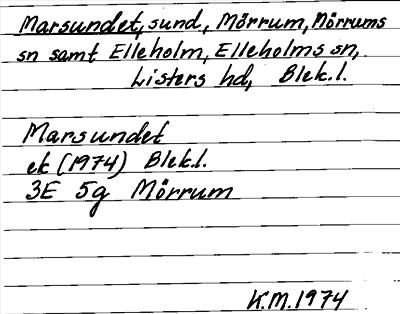 Marsundet, sund, Mörrum, Mörrums
sn samt Elleholm, Elleholms sn,
Listers hd, Blek.l.
Marsundet
ek (1974) Blek.l.
3E 5g Mörrum
K.M.1974